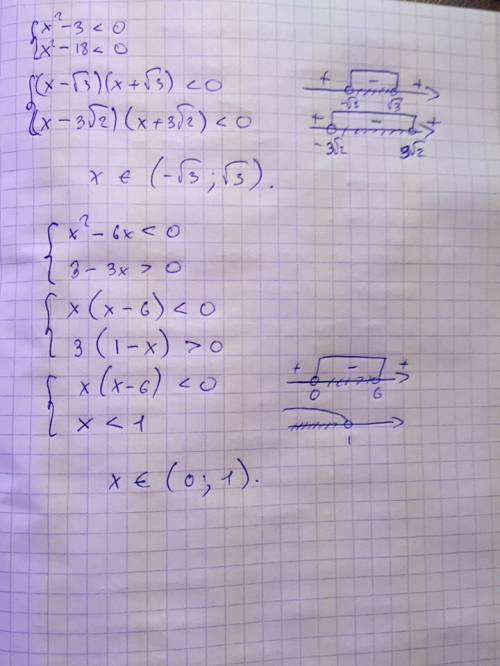 { x² - 3 < 0
x² - 18 < 0
{ (x - √3)(x + √3) < 0
(x - 3√2)(x + 3√2) < 0
+ - +
-√3 √3
+ - +
-3√2 3√2
x ∈ (-√3; √3).
{ x² - 6x < 0
3 - 3x > 0
{ x(x - 6) < 0
3(1 - x) > 0
{ x(x - 6) < 0
x < 1
+ - +
0 6
1
x ∈ (0; 1).